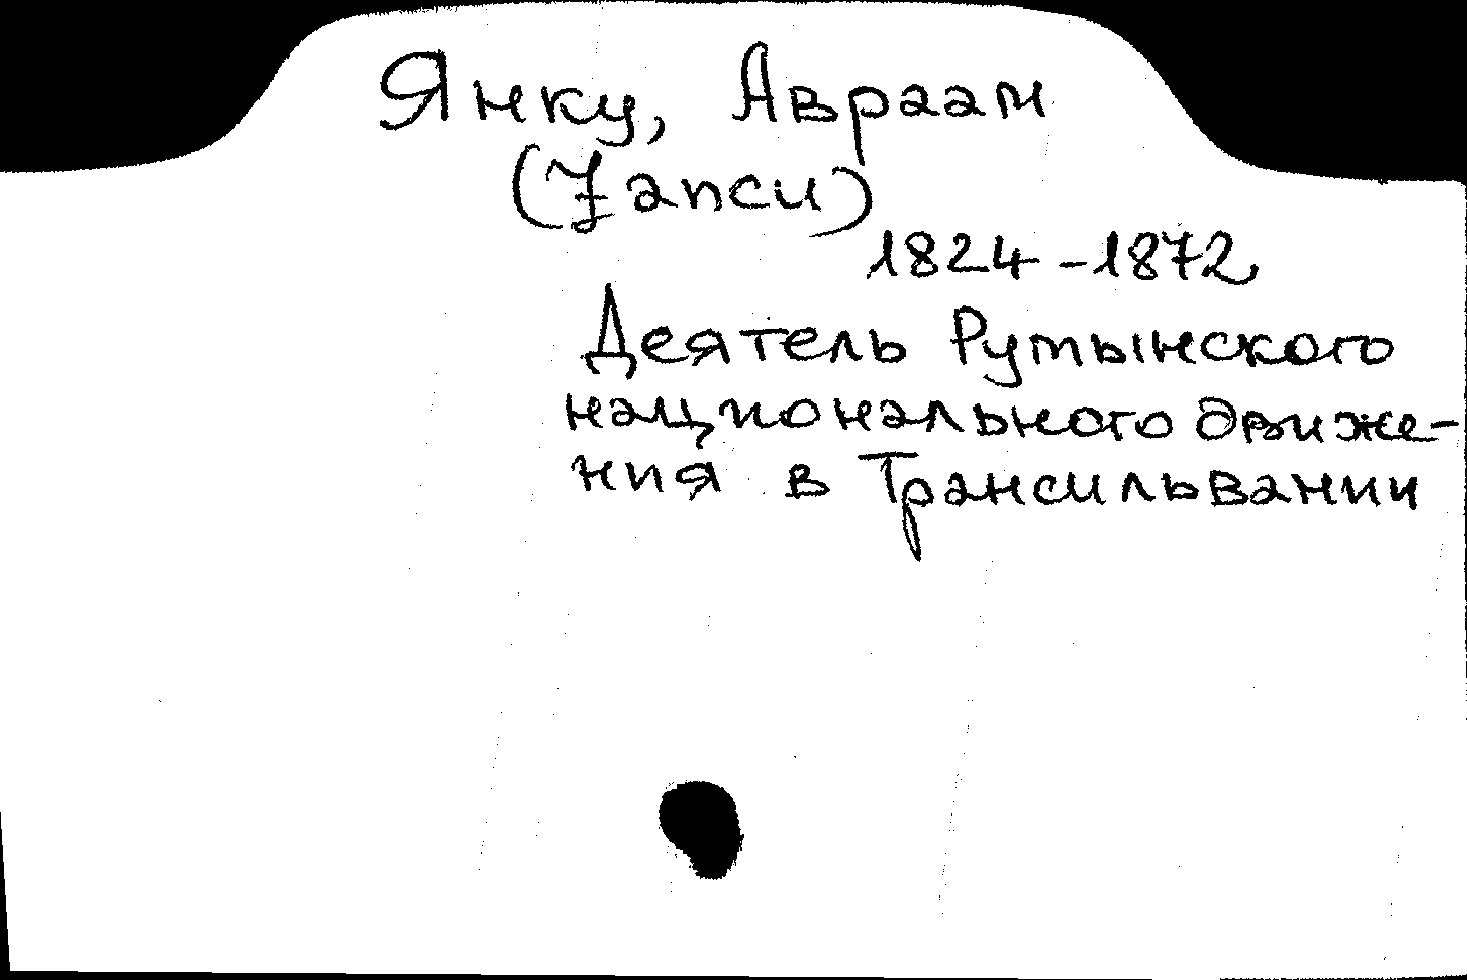 Янку, Авраам
(Jancu)
1824-1872
Деятель Румынского
национального движе-
ния в Трансильвании